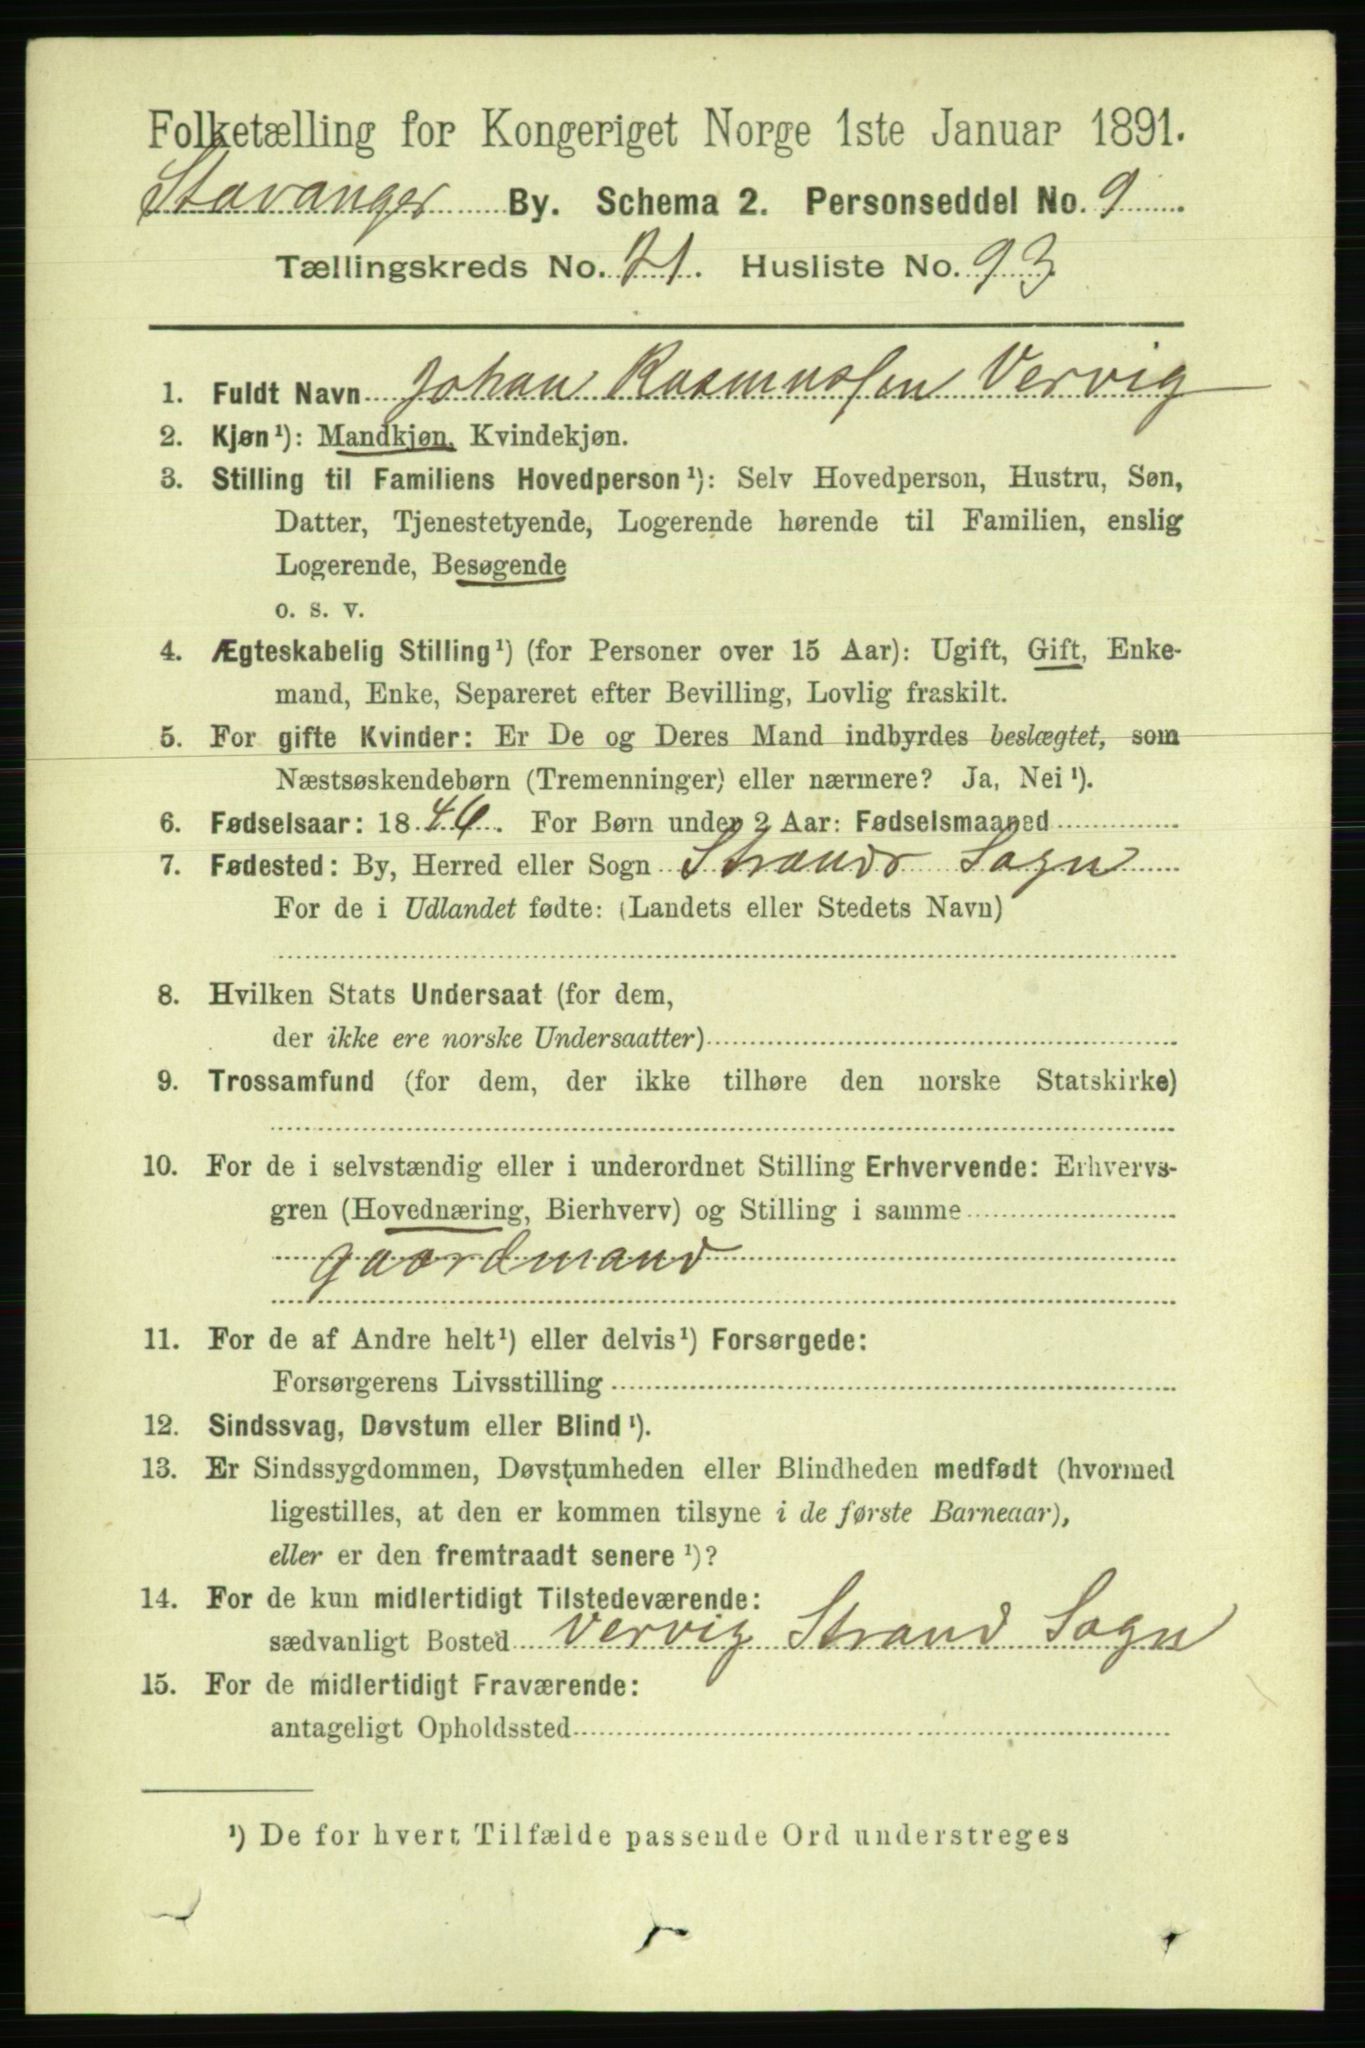 Folketælling for Kongeriget Norge 1ste Januar 1891.
Stavanger By. Schema 2. Personseddel No. 9
Tællingskreds No. 21. Husliste No. 93
1. Fuldt Navn Johan Rasmussen Vervig
2. Kjøn¹): Mandkjøn, Kvindekjøn.
3. Stilling til Familiens Hovedperson¹): Selv Hovedperson, Hustru, Søn,
Datter, Tjenestetyende, Logerende hørende til Familien, enslig
Logerende, Besøgende
o. s. v.
4. Ægteskabelig Stilling¹) (for Personer over 15 Aar): Ugift, Gift, Enke-
mand, Enke, Separeret efter Bevilling, Lovlig fraskilt.
5. For gifte Kvinder: Er De og Deres Mand indbyrdes beslægtet, som
Næstsøskendebørn (Tremenninger) eller nærmere? Ja, Nei¹).
6. Fødselsaar: 1846. For Børn under 2 Aar: Fødselsmaaned
7. Fødested: By, Herred eller Sogn Strands Sogn
For de i Udlandet fødte: (Landets eller Stedets Navn)
8. Hvilken Stats Undersaat (for dem,
der ikke ere norske Undersaatter)
9. Trossamfund (for dem, der ikke tilhøre den norske Statskirke)
10. For de i selvstændig eller i underordnet Stilling Erhvervende: Erhvervs-
gren (Hovednæring, Bierhverv) og Stilling i samme
gaardmand
11. For de af Andre helt¹) eller delvis¹) Forsørgede:
Forsørgerens Livsstilling
12. Sindssvag, Døvstum eller Blind¹).
13. Er Sindssygdommen, Døvstumheden eller Blindheden medfødt (hvormed
ligestilles, at den er kommen tilsyne i de første Barneaar),
eller er den fremtraadt senere¹)?
14. For de kun midlertidigt Tilstedeværende:
sædvanligt Bosted Vervig Strand Sogn
15. For de midlertidigt Fraværende:
antageligt Opholdssted
¹) De for hvert Tilfælde passende Ord understreges